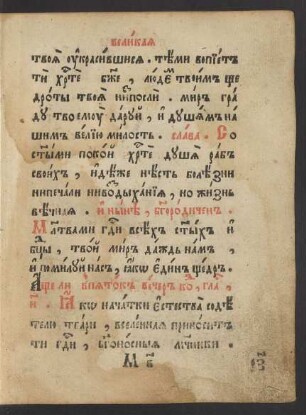 великая
твоѧ ᲂукрасившисѧ . тѣми вопїетъ
ти хрⷭ҇те бж҃е , людемъ твоимъ ще
дроты твоѧ низпосли . миръ гра
дꙋ твоемꙋ дарꙋй , и дꙋшамъ на
шимъ велїю милость . слава . Со
ст҃ыми покой хрⷭ҇те дꙋшѧ рабъ
своихъ , идѣже нѣсть болѣзни
ни печали ни воздыханїѧ , но жизнь
вѣчнаѧ . и нынѣ , бг҃ородиченъ .
Мл҃твами гдⷭ҇и всѣхъ ст҃ыхъ и
бцⷣы , твой миръ даждь намъ ,
и помилꙋй насъ , ꙗкѡ единъ щедръ .
Аще ли в пѧтокъ вечеръ ко , гла ,
и҃ . Ꙗкѡ начатки естества содѣ
телю твари , вселеннаѧ приноситъ
ти гдⷭ҇и , бг҃оносныѧ мч҃нки .